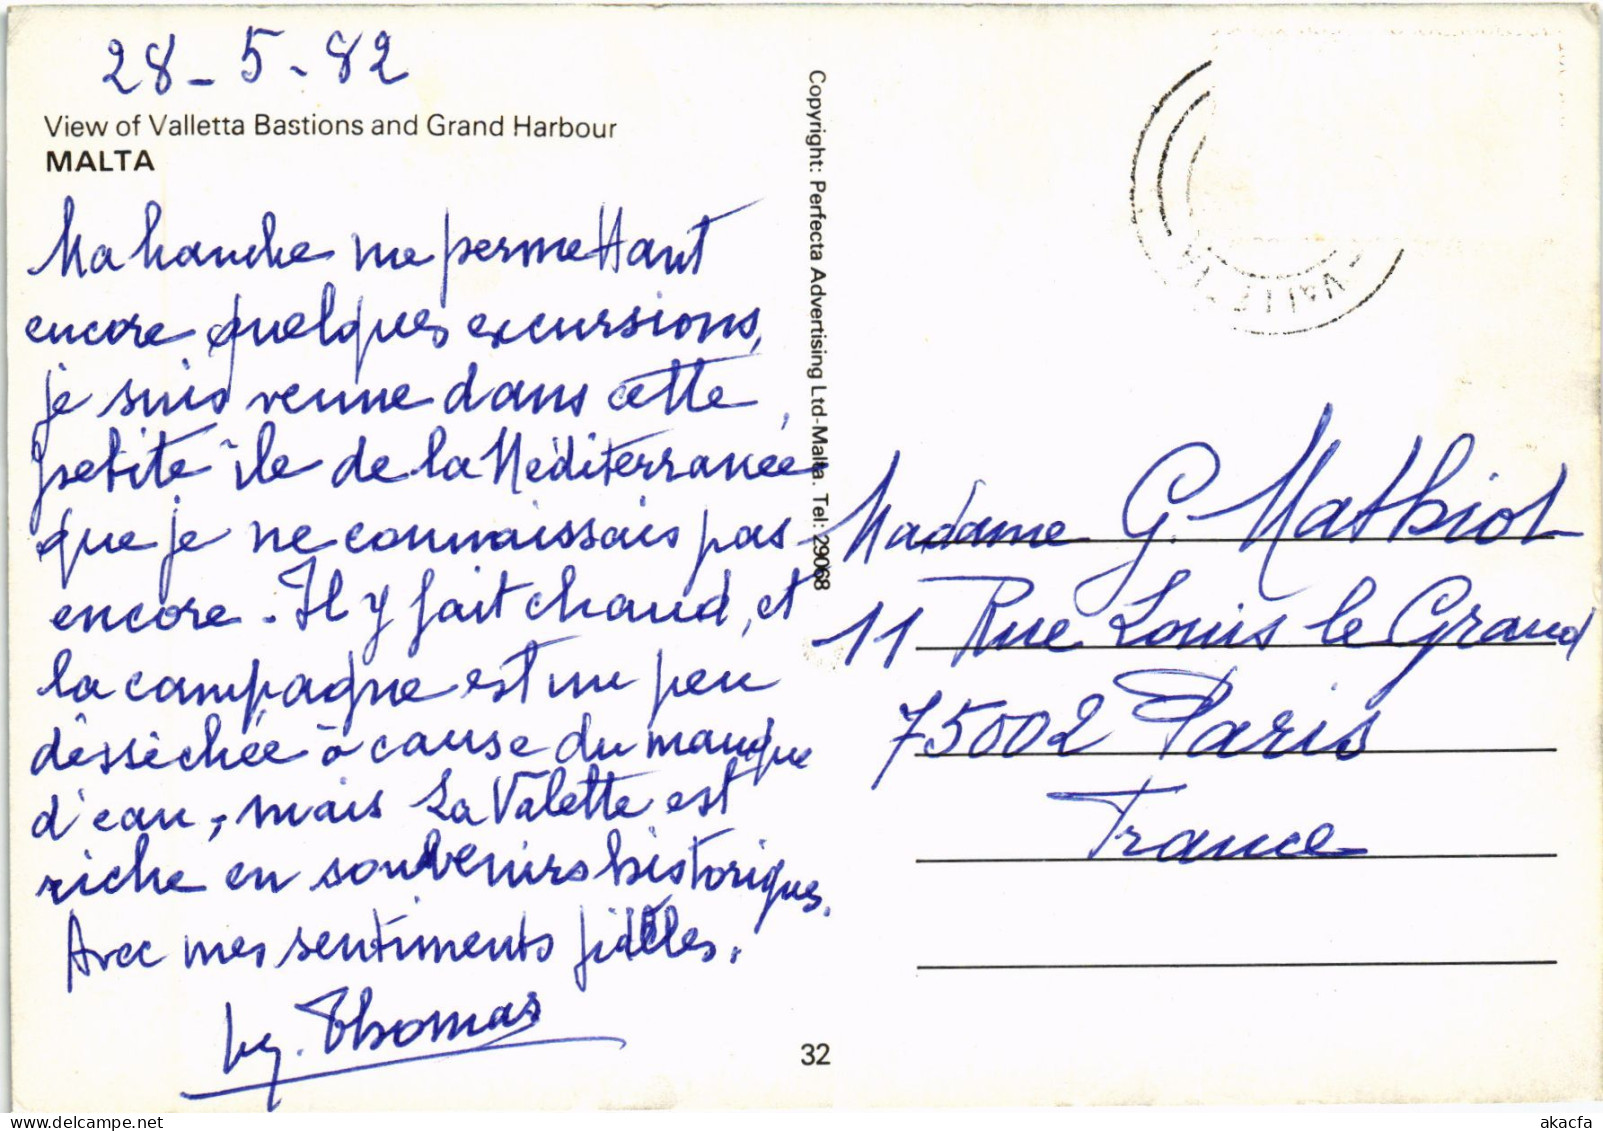 28-5-82
View of Valletta Bastions and Grand Harbour
MALTA
Ma hanche me permettant
encore quelques excursions,
je suis venue dans cette
petite île de la Méditerranée
que je ne connaissais pas
encore. Il y fait chaud, et
la campagne est un peu
desséchée à cause du manque
d'eau, mais La Valette est
riche en souvenirs historiques.
Avec mes sentiments fidèles.
Thomas
Copyright: Perfecta Advertising Ltd-Malta. Tel: 29068
32
Madame G. Mathiot
11 Rue Louis le Grand
75002 Paris
France
akacfa